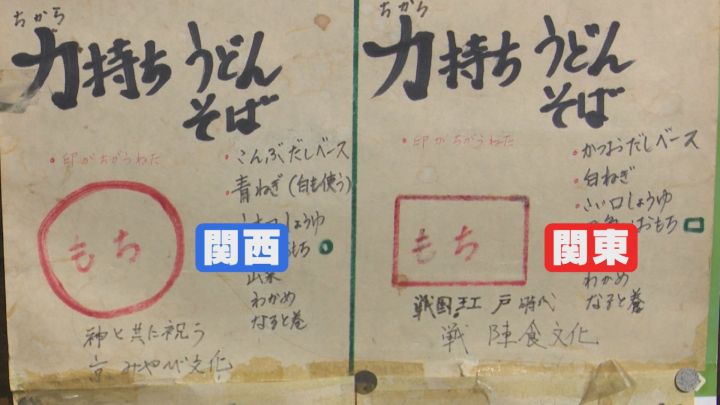 ちから
力持ち うどん
そば
・印がちがうねた
・こんぶだしベース
・青ねぎ(白も使う)
しょうゆ
もち
関西
わかめ
なると巻
神と共に祝う
京 みやび文化
ちから
力持ち うどん
そば
・印がちがうねた
・かつおだしベース
・白ねぎ
・こい口しょうゆ
おもち
もち
関東
わかめ
なると巻
戦国 江戸時代
戦陣食文化